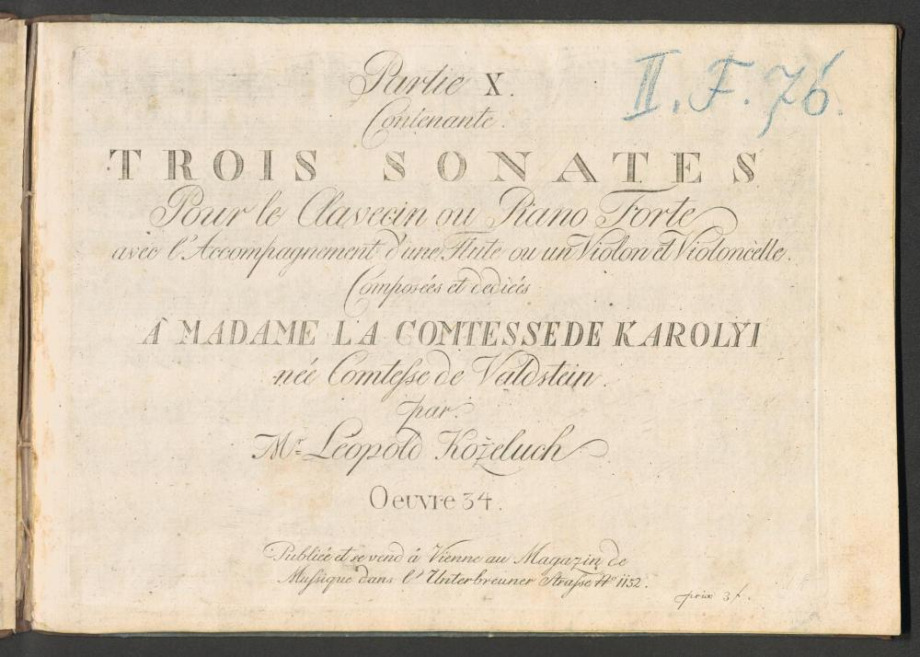 Partie X.
II. F. 76.
Contenante.
TROIS SONATES
Pour le Clavecin ou Piano Forte
avec l'Accompagnement d'une Flute ou un Violon et Violoncelle.
Composées et dediées
À MADAME LA COMTESSE DE KAROLYI
née Comtesse de Valdstein.
par.
Mr. Léopold Koželuch
Oeuvre 34.
Publiée et se vend à Vienne au Magazin de
Mussique dans l'Unterbreuner Strasse No 1152.
prix 3 f.